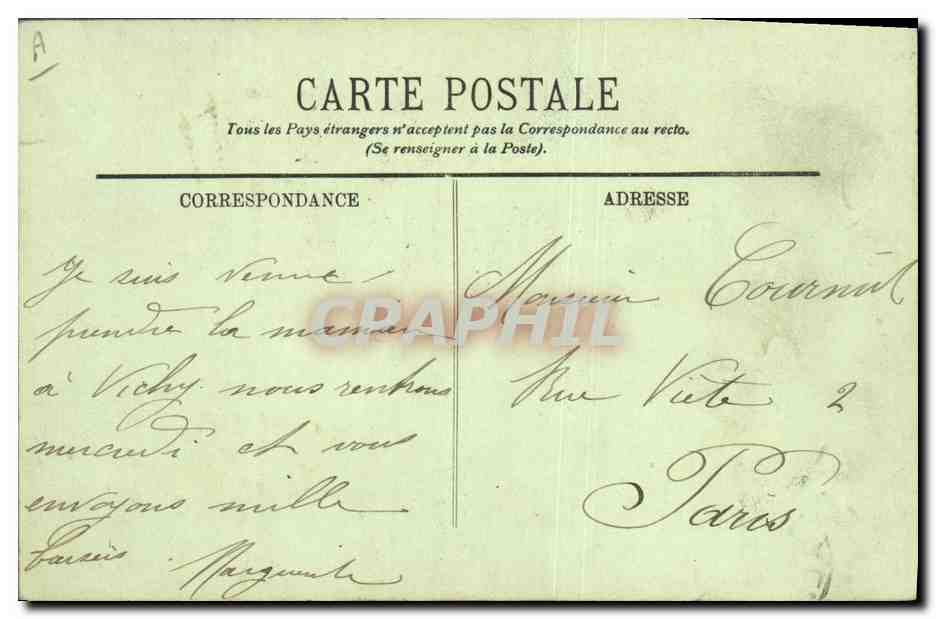 A
CARTE POSTALE
Tous les Pays étrangers n'acceptent pas la Correspondance au recto.
(Se renseigner à la Poste).
CORRESPONDANCE
ADRESSE
Je suis venue
prendre la maman
à Vichy. nous rentrons
mercredi et vous
envoyons mille
baisers. Marguerite
Monsieur
Rue Viète 2
Paris
CPAPHIL